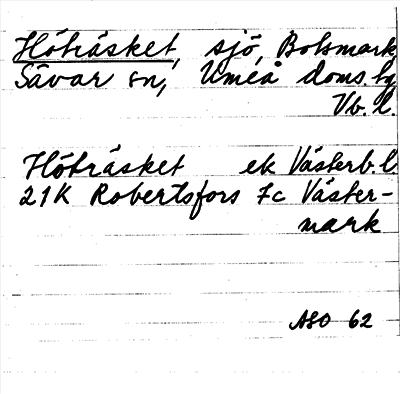 Hötråsket, sjö, Botsmark,
Sävar sn, Umeå doms.hg
Vb. l.
Hötråsket ek Västerb. l.
21K Robertsfors 7c Väster-
mark
ASO 62